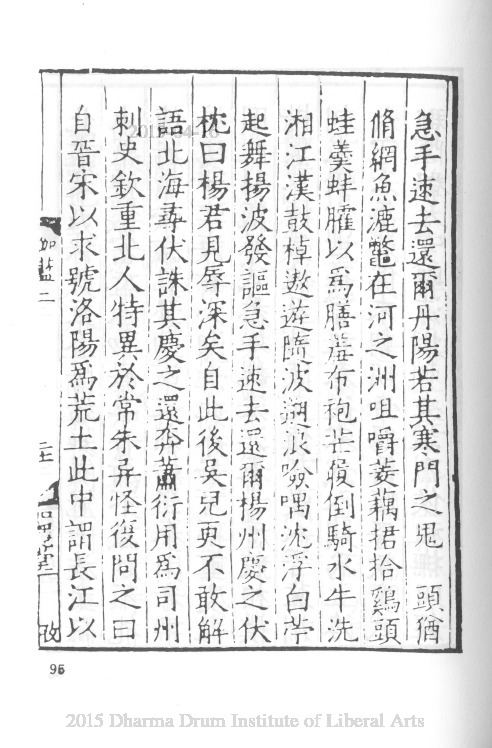 急手速去還爾丹陽若其寒門之鬼　頭猶
脩網魚漉鼈在河之洲咀嚼菱藕捃拾鷄頭
蛙羹蚌臛以爲膳羞布袍芒履倒騎水牛洗
湘江漢鼓棹遨遊隨波遡浪噞喁沈浮白苧
起舞揚波發謳急手速去還爾楊州慶之伏
枕曰楊君見辱深矣自此後吳兒更不敢解
語北海尋伏誅其慶之還奔蕭衍用爲司州
刺史欽重北人特異於常朱异怪復問之曰
自晉宋以求號洛陽爲荒土此中謂長江以
加藍二
二十
96
2015 Dharma Drum Institute of Liberal Arts